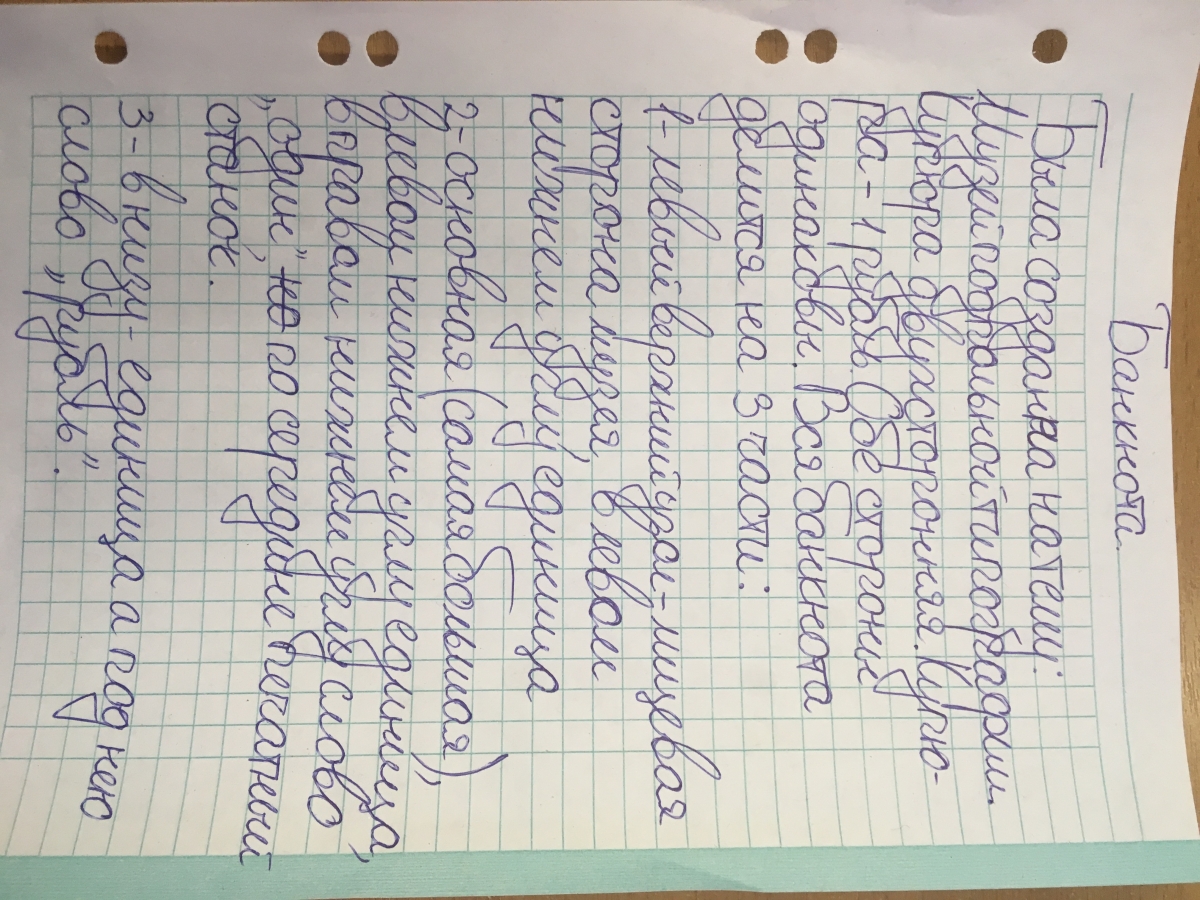 Банкнота.
Была создана на тему:
Музей подпольной типографии.
Купюра двухсторонняя. Купю-
ра - 1 рубль. Обе стороны
одинаковы. Вся банкнота
делится на 3 части:
1 - левый верхний узел - лицевая
сторона музея, в левом
нижнем углу, единица
2 - основная (самая большая),
в левом нижнем углу единица,
в правом нижнем углу слово
„один”, но по середине печатный
станок.
3 - в низу - единица а под нею
слово „рубль”.